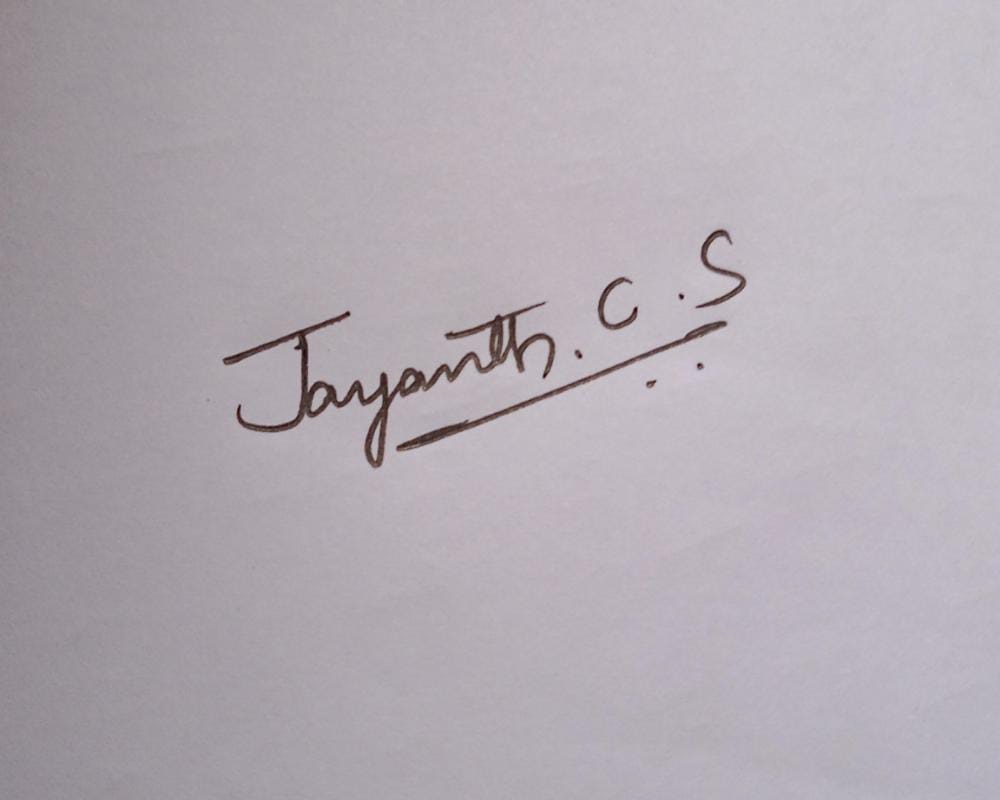 Jayanth. C .S